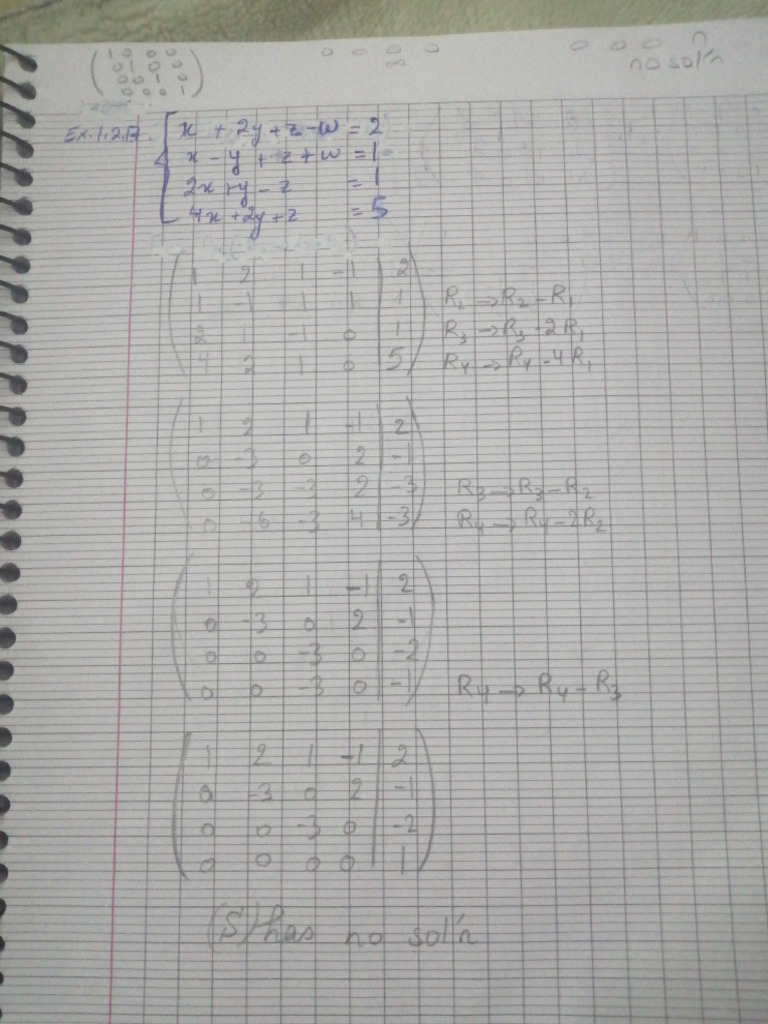 1 0 0 0    0 0 0 0    0 0 0 0
0 1 0 0    ∞    no sol'n
0 0 1 0
0 0 0 1
Ex.1.2.17.
x + 2y + z - w = 2
x - y + z + w = 1
2x + y - z = 1
4x + 2y + z = 5
1 2 1 -1 | 2
1 -1 1 1 | 1    R2 → R2 - R1
2 -1 0 | 1    R3 → R3 - 2R1
4 2 1 0 | 5    R4 → R4 - 4R1
1 2 1 -1 | 2
0 -3 0 2 | -1
0 -3 -3 2 | -3    R3 → R3 - R2
0 -6 -3 4 | -3    R4 → R4 - 2R2
1 2 1 -1 | 2
0 -3 0 2 | -1
0 0 -3 0 | -2
0 0 -3 0 | -1    R4 → R4 - R3
1 2 1 -1 | 2
0 -3 0 2 | -1
0 0 -3 0 | -2
0 0 0 0 | 1
(S) has no sol'n